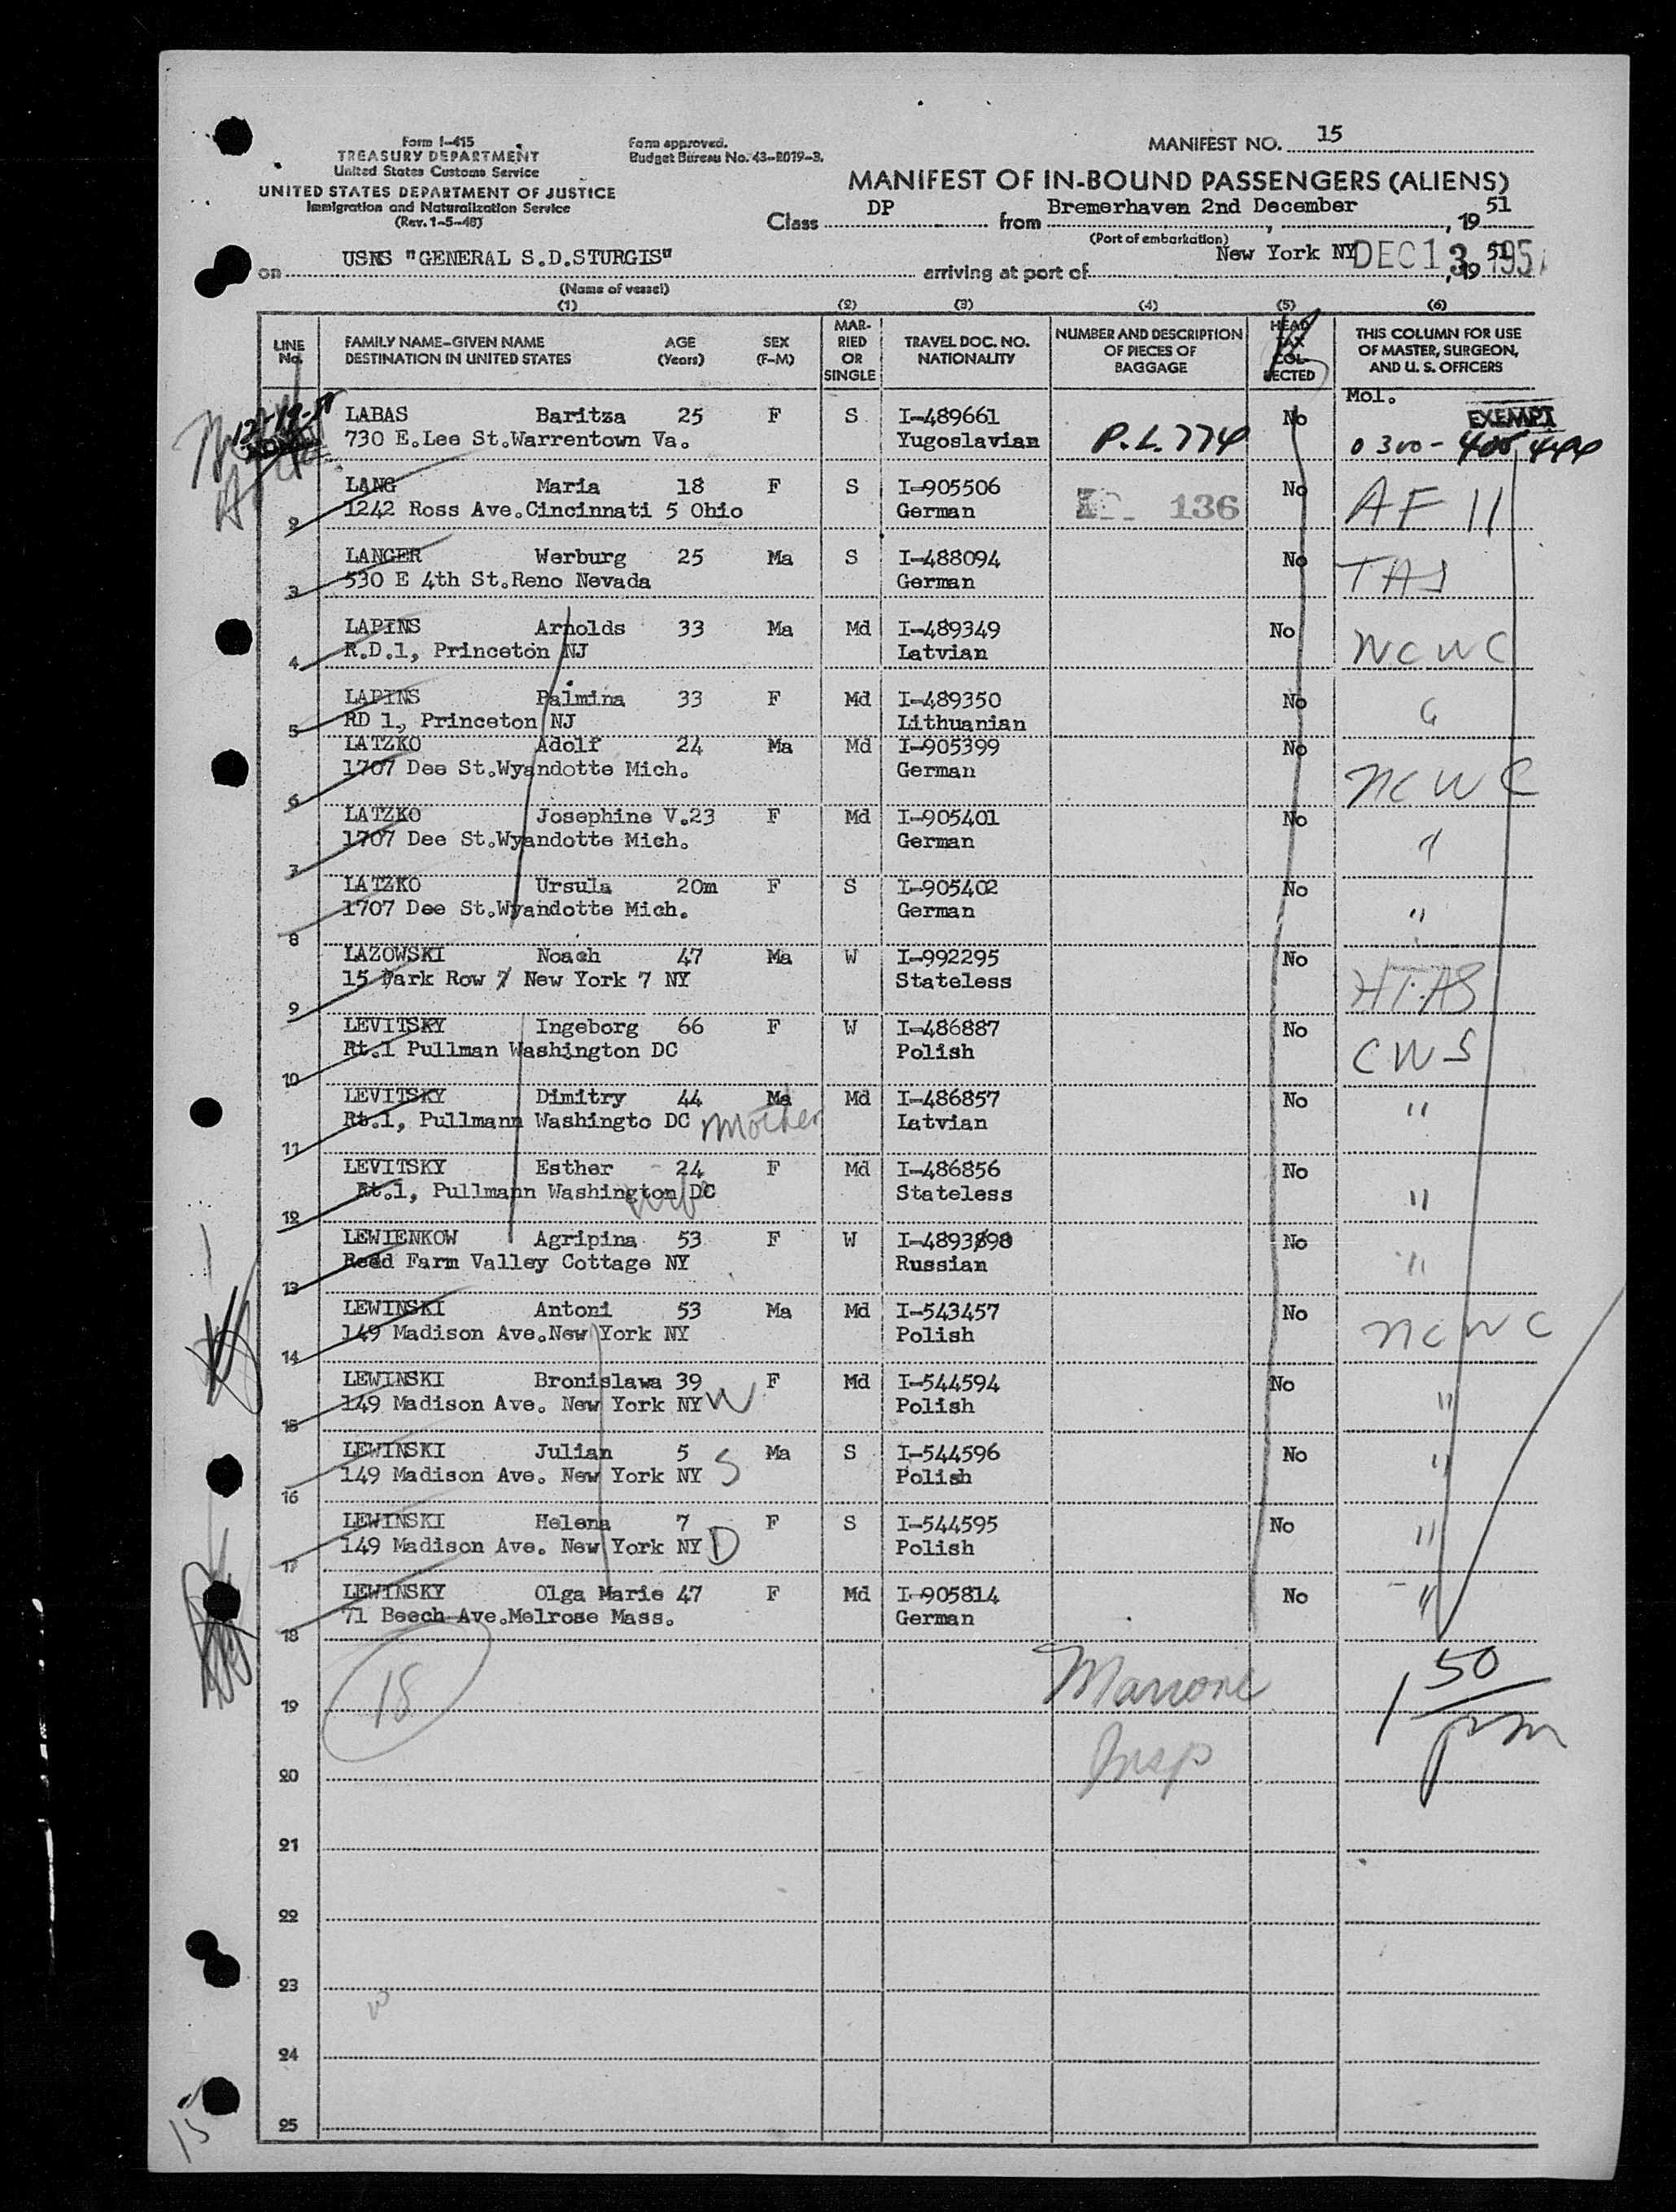 Form I-415
TREASURY DEPARTMENT
United States Customs Service
UNITED STATES DEPARTMENT OF JUSTICE
Immigration and Naturalization Service
(Rev. 1-5-48)
Form approved.
Budget Bureau No. 43-R019-3.
MANIFEST NO. 15
MANIFEST OF IN-BOUND PASSENGERS (ALIENS)
Class DP from Bremerhaven 2nd December, 19 51
(Port of embarkation)
on USNS "GENERAL S.D.STURGIS" arriving at port of New York NY DEC 13 1951, 19 51
(Name of vessel)
(1) (2) (3) (4) (5) (6)
LINE No. FAMILY NAME-GIVEN NAME DESTINATION IN UNITED STATES AGE (Years) SEX (F-M) MARRIED OR SINGLE TRAVEL DOC. NO. NATIONALITY NUMBER AND DESCRIPTION OF PIECES OF BAGGAGE HEAD TAX COLLECTED THIS COLUMN FOR USE OF MASTER, SURGEON, AND U. S. OFFICERS
Mol.
12-19-51
LABAS Baritza 25 F S I-489661 No EXEMPT
730 E.Lee St.Warrentown Va. Yugoslavian P.L.774 0300-
LANG Maria 18 F S I-905506 No AF 11
2 1242 Ross Ave.Cincinnati 5 Ohio German 136
LANGER Werburg 25 Ma S I-488094 No TAS
3 530 E 4th St.Reno Nevada German
LAPINS Arnolds 33 Ma Md I-489349 No NCWC
4 R.D.1, Princeton NJ Latvian
LAPINS Palmina 33 F Md I-489350 No
5 RD 1, Princeton NJ Lithuanian
LATZKO Adolf 24 Ma Md I-905399 No
6 1707 Dee St.Wyandotte Mich. German NCWC
LATZKO Josephine V.23 F Md I-905401 No
7 1707 Dee St.Wyandotte Mich. German "
LATZKO Ursula 20m F S I-905402 No
8 1707 Dee St.Wyandotte Mich. German "
LAZOWSKI Noach 47 Ma W I-992295 No
9 15 Park Row 7 New York 7 NY Stateless HIAS
LEVITSKY Ingeborg 66 F W I-486887 No
10 Rt.1 Pullman Washington DC Polish CWS
LEVITSKY Dimitry 44 Ma Md I-486857 No
11 Rt.1, Pullmann Washingto DC Mother Latvian "
LEVITSKY Esther 24 F Md I-486856 No
12 Rt.1, Pullmann Washington DC wife Stateless "
LEWIENKOW Agripina 53 F W I-4893898 No
13 Reed Farm Valley Cottage NY Russian "
LEWINSKI Antoni 53 Ma Md I-543457 No
14 149 Madison Ave.New York NY Polish NCWC
LEWINSKI Bronislawa 39 F Md I-544594 No
15 149 Madison Ave. New York NY W Polish "
LEWINSKI Julian 5 Ma S I-544596 No
16 149 Madison Ave. New York NY S Polish "
LEWINSKI Helena 7 F S I-544595 No
17 149 Madison Ave. New York NY D Polish "
LEWINSKY Olga Marie 47 F Md I-905814 No
18 71 Beech Ave.Melrose Mass. German "
19 18 Marrone 1 50 pm
20 Insp
21
22
23
24
25
15